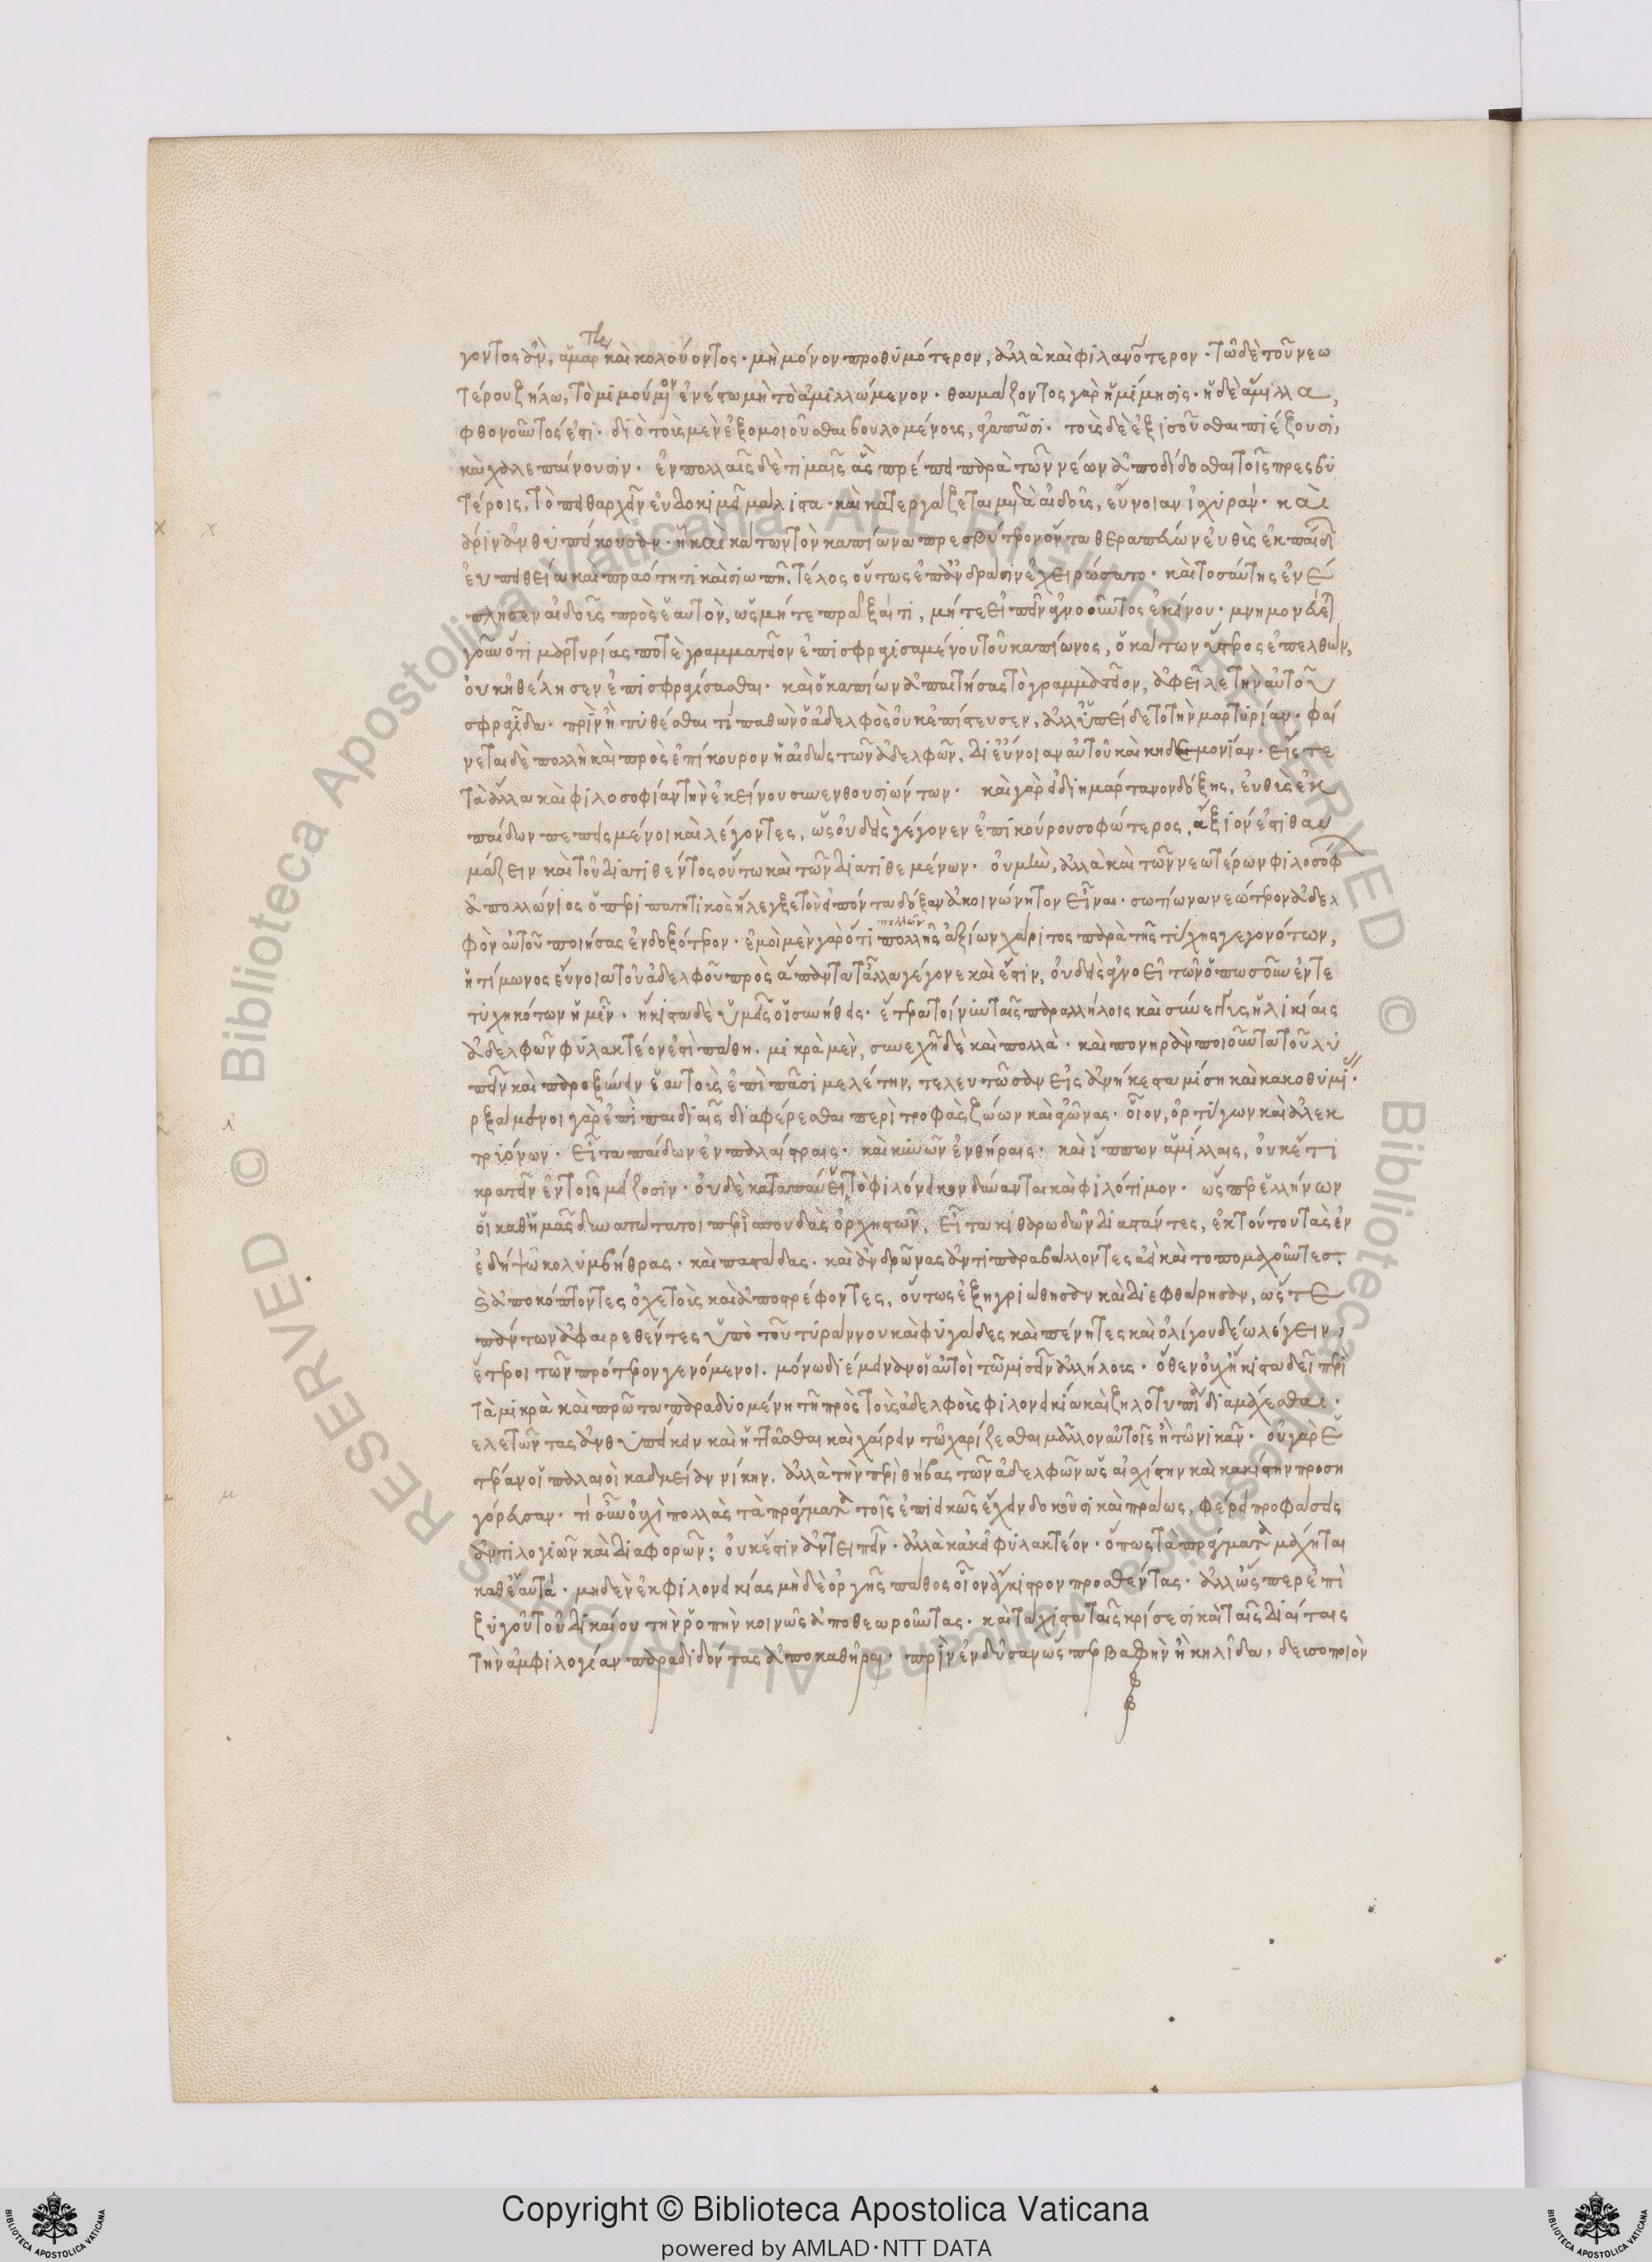 γοντος ἂν, ἁμαρτεῖν καὶ κολούοντος· μὴ μόνον προθυμότερον, ἀλλὰ καὶ φιλανότερον· τῶ δὲ τοῦ νεω
τέρου ζήλω, τὸ μιμούμενον ἐνέστω μὴ τὸ ἁμιλλώμενον· θαυμάζοντος γὰρ ἡ μίμησις· ἡ δὲ ἅμιλλα,
φθονοῦντός ἐστι· διὸ τοὺς μὲν ἐξομοιοῦσθαι βουλομένοις, ἀγαπῶσι· τοὺς δὲ ἐξισοῦσθαι πιέζουσι,
καὶ χαλεπαίνουσιν· ἐν πολλαῖς δὲ τιμαῖς ἃς πρέπει παρὰ τῶν νέων ἀποδίδοσθαι τοῖς πρεσβυ
τέροις, τὸ πειθαρχεῖν εὐδοκιμεῖ μάλιστα· καὶ κατεργάζεται μετὰ αἰδοῦς, εὔνοιαν ἰσχυράν· καὶ
χάριν ἀνθυπείκουσαν· ἧ καὶ κάτων τὸν καπίωνα πρεσβύτερον ὄντα θεραπεύων εὐθὺς ἐκ παίδων
εὐπειθεία καὶ πραότητι καὶ σιωπῆ, τέλος οὕτως ἐπ' ἄνδρασιν ἐχειρώσατο· καὶ τοσαύτης ἐνέ
πλησεν αἰδοῦς πρὸς ἑαυτὸν, ὡς μήτε πρᾶξαί τι, μήτε εἰπεῖν ἀγνοοῦντος ἐκείνου· μνημονεύεται
γοῦν ὅτι μαρτυρίας ποτὲ γραμματεῖον ἐπισφραγισαμένου τοῦ καπίωνος, ὁ κάτων ὕστερος ἐπελθὼν,
οὐκ ἠθέλησεν ἐπισφραγίσασθαι· καὶ ὁ καπίων ἀπαιτήσας τὸ γραμματεῖον, ἀφεῖλε τὴν αὐτοῦ
σφραγῖδα· πρὶν ἢ πυθέσθαι τί παθὼν ὁ ἀδελφὸς οὐκ ἐπίστευσεν, ἀλλ' ὑπείδετο τὴν μαρτυρίαν· φαί
νεται δὲ πολλὴ καὶ πρὸς ἐπίκουρον ἡ αἰδὼς τῶν ἀδελφῶν, δι' εὔνοιαν αὐτοῦ καὶ κηδεμονίαν· εἴς τε
τὰ ἄλλα καὶ φιλοσοφίαν τὴν ἐκείνου συνενθουσιώντων· καὶ γὰρ εἰ διημάρτανον δόξης, εὐθὺς ἐκ
παίδων πεπεισμένοι καὶ λέγοντες, ὡς οὐδεὶς γέγονεν ἐπικούρου σοφώτερος, ἄξιόν ἐστι θαυ
μάζειν καὶ τοῦ διατιθέντος οὕτω καὶ τῶν διατιθεμένων· οὐ μὴν, ἀλλὰ καὶ τῶν νεωτέρων φιλοσόφων
ἀπολλώνιος ὁ περιπατητικὸς ἤλεγξε τὸν εἰπόντα δόξαν ἀκοινώνητον εἶναι· σωτίωνα νεώτερον ἀδελ
φὸν αὐτοῦ ποιήσας ἐνδοξότερον· ἐμοὶ μὲν γὰρ ὅτι πολλῆς πολλῶν ἀξίων χάριτος παρὰ τῆς τύχης γεγονότων,
ἡ τίμωνος εὔνοια τοῦ ἀδελφοῦ πρὸς ἅπαντα τἄλλα γέγονε καὶ ἔστιν, οὐδεὶς ἀγνοεῖ τῶν ὁπωσοῦν ἐντε
τυχηκότων ἡμῖν· ἥκιστα δὲ ὑμεῖς οἱ συνήθεις· ἕτερα τοίνυν ταῖς παραλλήλοις καὶ σύνεγγυς ἡλικίαις
ἀδελφῶν φυλακτέον ἐστὶ πάθη· μικρὰ μὲν, συνεχῆ δὲ καὶ πολλά· καὶ πονηρὰν ποιοῦντα τοῦ λυ
πεῖν καὶ παροξύνειν ἑαυτοὺς ἐπὶ πᾶσι μελέτην, τελευτῶσαν εἰς ἀνήκεστα μίση καὶ κακοθυμίαν·
ρξάμενοι γὰρ ἐπὶ παιδιαῖς διαφέρεσθαι περὶ τροφὰς ζώων καὶ ἀγῶνας· οἷον, ὀρτύγων καὶ ἀλεκ
τρυόνων· εἶτα παίδων ἐν παλαίστραις· καὶ κυνῶν ἐν θήραις· καὶ ἵππων ἁμίλλαις, οὐκέτι
κρατεῖν ἐν τοῖς μείζοσιν· οὐδὲ καταπαύειν τὸ φιλόνεικον δύνανται καὶ φιλότιμον· ὥσπερ ἑλλήνων
οἱ καθ' ἡμᾶς δυνατώτατοι περὶ σπουδὰς ὀρχηστῶν, εἶτα κιθαρωδῶν διαστάντες, ἐκ τούτου τὰς ἐν
ἐδήψω κολυμβήθρας· καὶ παστάδας· καὶ ἀνδρῶνας ἀντιπαραβάλλοντες ἀεὶ καὶ τοπομαχοῦντες·
καὶ ἀποκόπτοντες ὀχετοὺς καὶ ἀποστρέφοντες, οὕτως ἐξηγριώθησαν καὶ διεφθάρησαν, ὥστε
πάντων ἀφαιρεθέντες ὑπὸ τοῦ τυράννου καὶ φυγάδες καὶ πένητες καὶ ὀλίγου δέω λέγειν,
ἕτεροι τῶν πρότερον γενόμενοι. μόνω διέμειναν οἱ αὐτοὶ τῶ μισεῖν ἀλλήλους· ὅθεν οὐχ ἥκιστα δεῖ περὶ
τὰ μικρὰ καὶ πρῶτα παραδυομένη τῆ πρὸς τοὺς ἀδελφοὺς φιλονεικία καὶ ζηλοτυπία διαμάχεσθαι·
ελετῶντας ἀνθυπείκειν καὶ ἡττᾶσθαι καὶ χαίρειν τῶ χαρίζεσθαι μᾶλλον αὐτοῖς ἢ τῶ νικᾶν· οὐ γὰρ ἑ
τέραν οἱ παλαιοὶ καδμείαν νίκην, ἀλλὰ τὴν περὶ θήβας τῶν ἀδελφῶν ὡς αἰσχίστην καὶ κακίστην προση
γόρευσαν· τί οὖν οὐχὶ πολλὰς τὰ πράγματα τοῖς ἐπιεικῶς ἔχειν δοκοῦσι καὶ πράως, φέρει προφάσεις
ἀντιλογιῶν καὶ διαφορῶν; οὐκ ἔστιν ἀντειπεῖν· ἀλλὰ κἀκεῖ φυλακτέον· ὅπως τὰ πράγματα μάχηται
καθ' ἑαυτά· μηδὲν ἐκ φιλονεικίας μηδὲ ὀργῆς πάθος οἷον ἄγκιστρον προσθέντας· ἀλλ' ὥσπερ ἐπὶ
ζυγοῦ τοῦ δικαίου τὴν ῥοπὴν κοινῶς ἀποθεωροῦντας· καὶ τάχιστα ταῖς κρίσεσι καὶ ταῖς διαίταις
τὴν ἀμφιλογίαν παραδιδόντας ἀποκαθῆραι· πρὶν ἐνδῦσαν ὥσπερ βαφὴν ἢ κηλῖδα, δευσοποιὸν